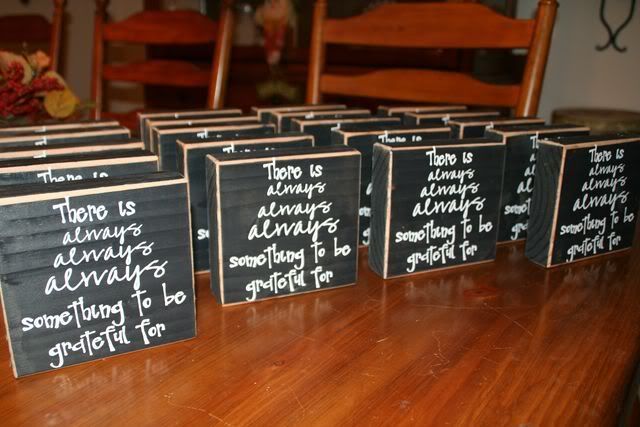 There is
always
always
always
something to be
grateful for
There is
always
always
always
something to be
grateful for
There is
always
always
always
something to be
grateful for
There is
always
always
always
something to be
grateful for
There is
There is
There is